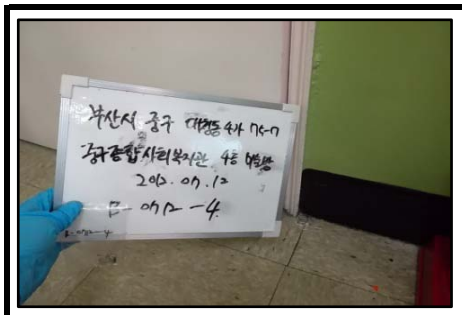 부산시 중구 대청동 4가 75-7
중구종합사회복지관 4층
2012.07.12
B-0712-4
B-0712-4